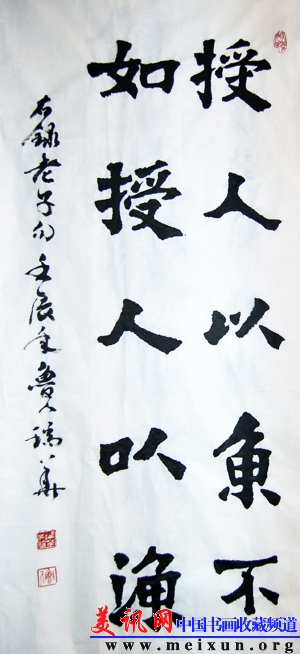 授人以魚不
如授人以渔
右録老子句壬辰年鲁人
美讯网 中国书画收藏频道
www.meixun.org